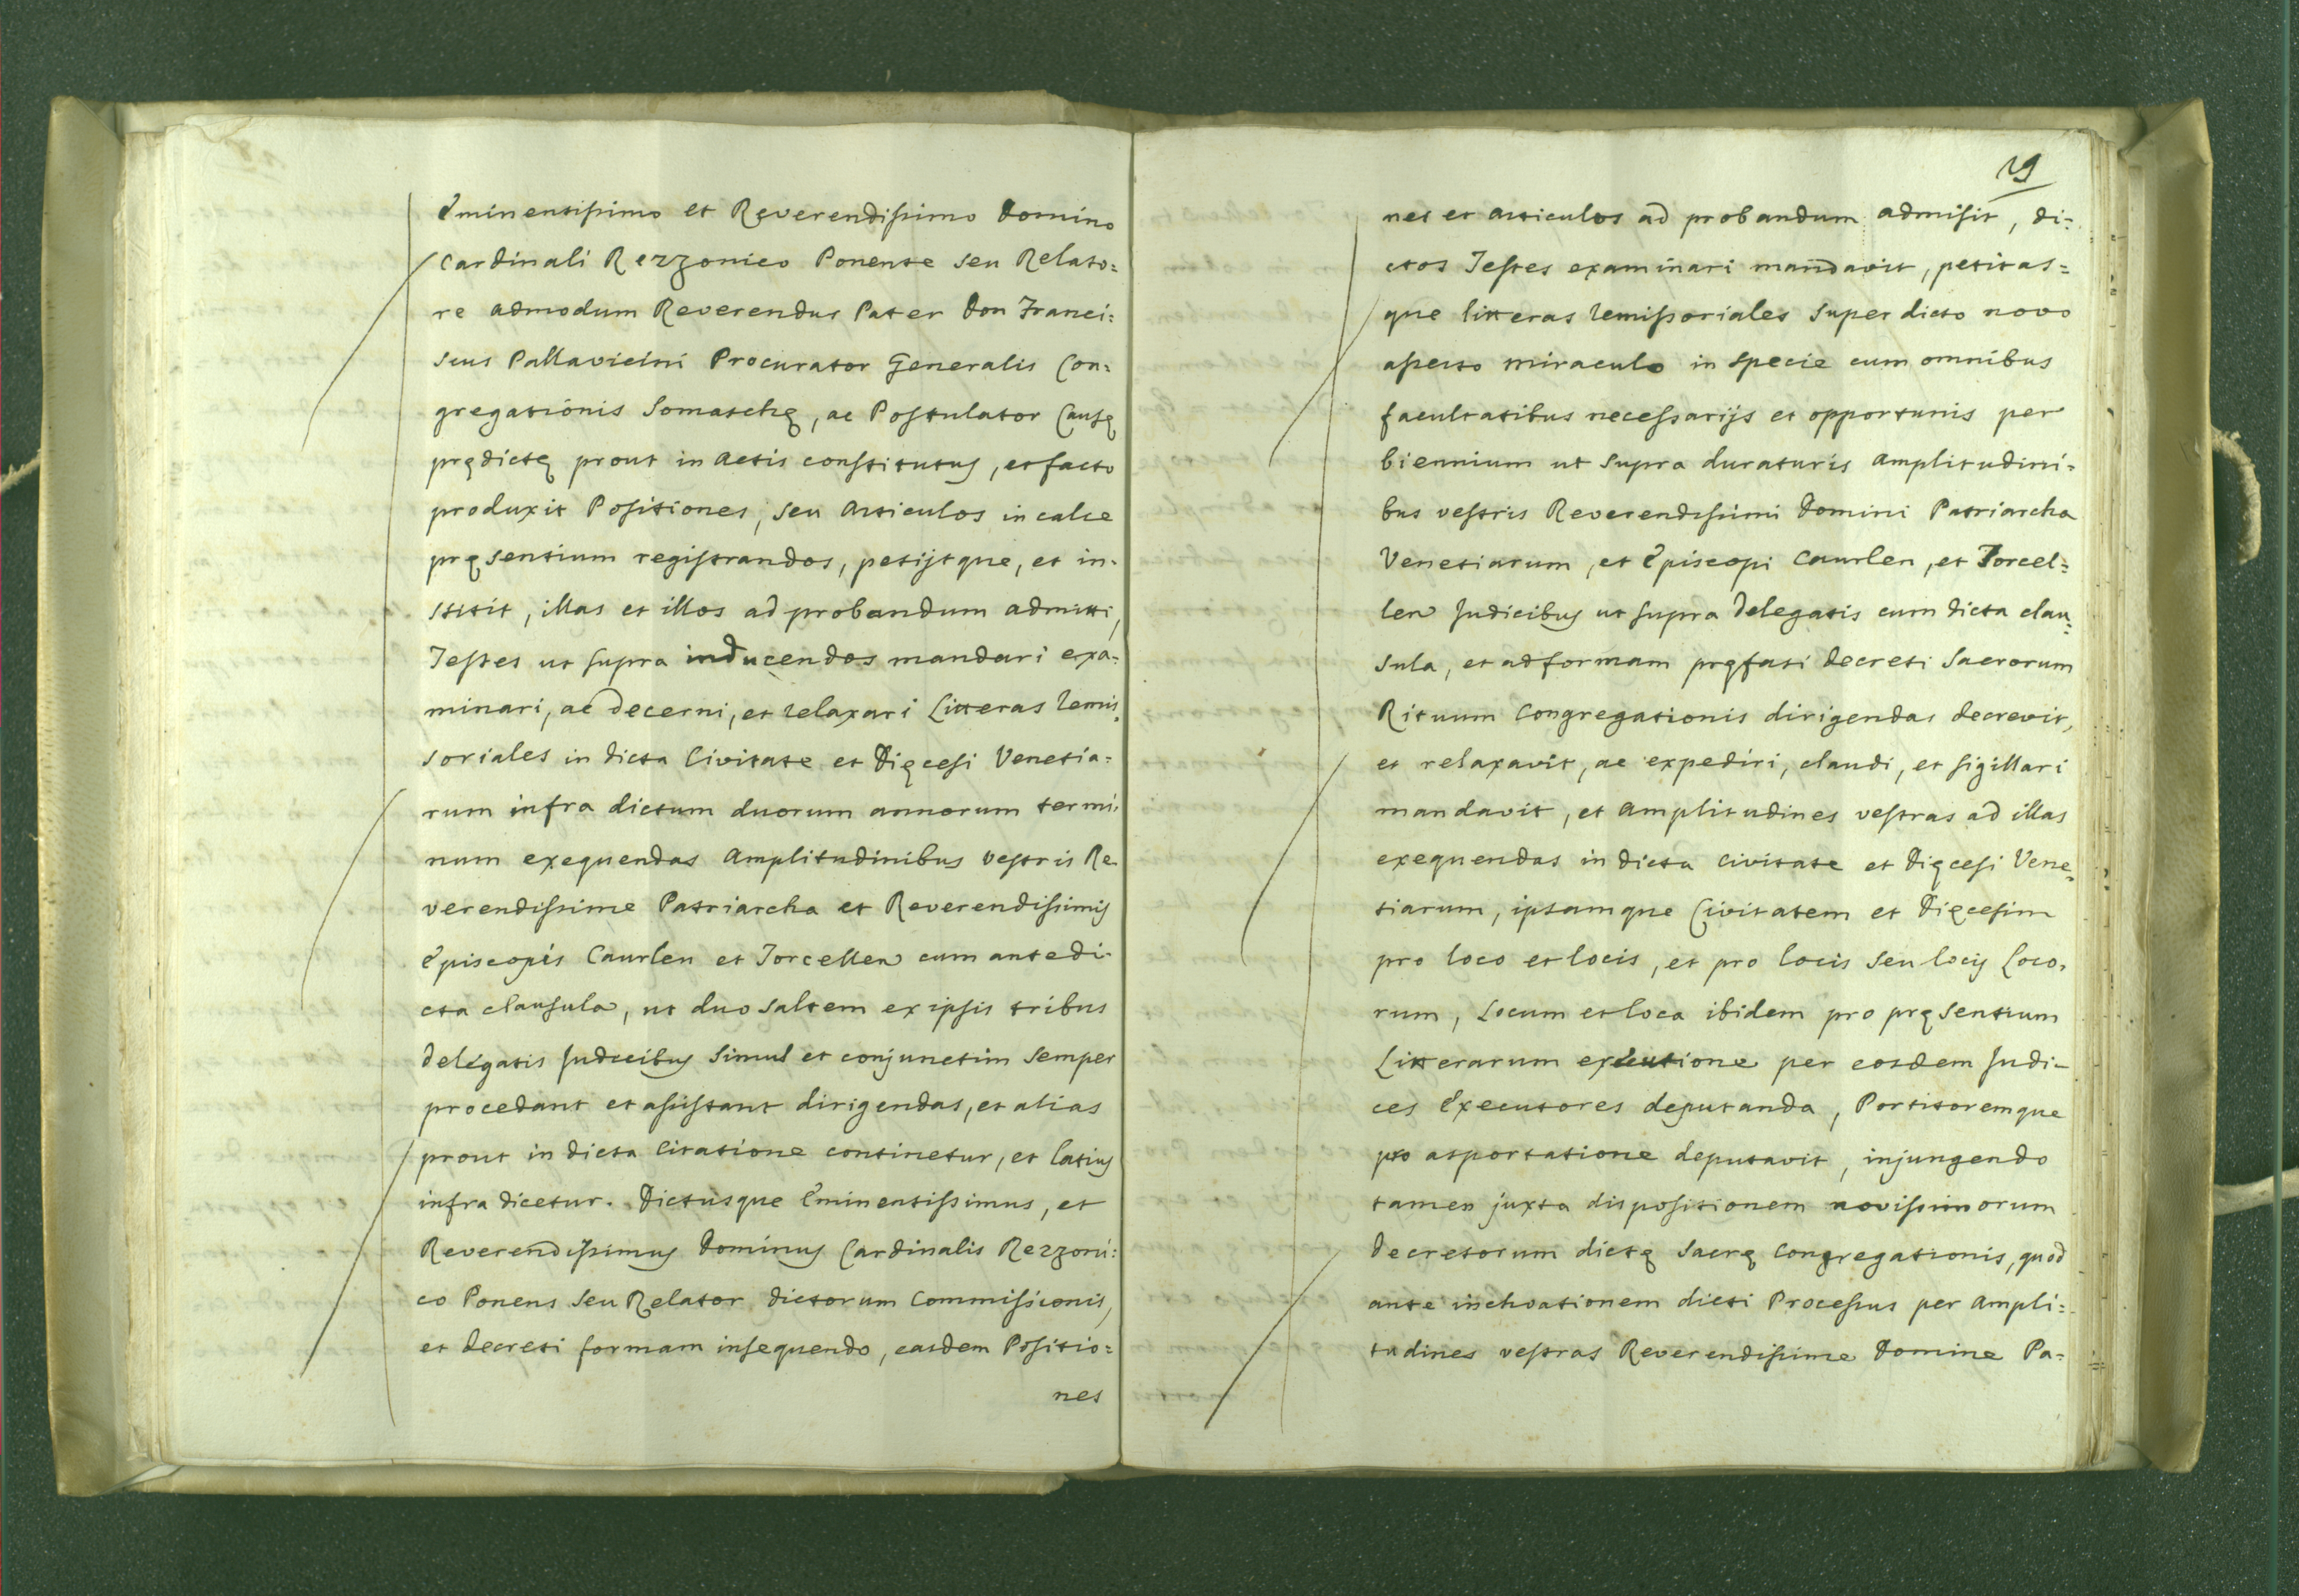 Eminentissimo et Reverendissimo Domino
Cardinali Rezzonico Ponente seu Relato=
re admodum Reverendus Pater Don Franci=
scus Pallavicini Procurator Generalis Con=
gregationis Somaschę, ac Postulator Causę
prędictę prout in Actis constitutus, et facto
produxit Positiones, seu Articulos in calce
pręsentium registrandos, petijtque, et in=
stitit, illas et illos ad probandum admitti,
Testes ut supra inducendos mandari exa=
minari, ac decerni, et relaxari Litteras remis=
soriales in dicta Civitate et Dięcesi Venetia=
rum infra dictum duorum annorum termi=
num exequendas Amplitudinibus vestris Re
verendissime Patriarcha et Reverendissimis
Episcopis Caurlen et Torcellen cum antedi=
cta clausula, ut duo saltem ex ipsis tribus
delegatis Judicibus simul et conjunctim semper
procedant et assistant dirigendas, et alias
prout in dicta Citatione continetur, et latius
infra dicetur. Dictusque Eminentissimus, et
Reverendissimus Dominus Cardinalis Rezzoni=
co Ponens seu Relator dictorum Commissionis,
et Decreti formam insequendo, easdem Positio=
nes
19
nes et Articulos ad probandum admisit, di=
ctos Testes examinari mandavit, petitas=
que litteras remissoriales super dicto novo
asserto miraculo in specie cum omnibus
facultatibus necessarijs et opportunis per
biennium ut supra duraturis Amplitudini=
bus vestris Reverendissimi Domini Patriarcha
Venetiarum, et Episcopi Caurlen, et Torcel=
len Judicibus ut supra Delegatis cum dicta clau=
sula, et ad formam pręfati Decreti Sacrorum
Rituum Congregationis dirigendas decrevit,
et relaxavit, ac expediri, claudi, et sigillari
mandavit, et Amplitudines vestras ad illas
exequendas in dicta Civitate et Dięcesi Vene=
tiarum, ipsamque Civitatem et Dięcesim
pro loco et locis, et pro locis seu locis Loco=
rum, Locum et loca ibidem pro pręsentium
Litterarum executione per eosdem Judi=
ces Executores deputanda, Portitoremque
pro asportatione deputavit, injungendo
tamen juxta dispositionem novissimorum
Decretorum dictę Sacrę Congregationis, quod
ante inchoationem dicti Processus per Ampli=
tudines vestras Reverendissime Domine Pa=